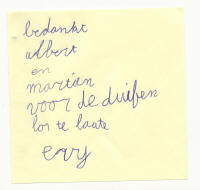 bedankt
albert
en
martien
voor de duifen
los te laate